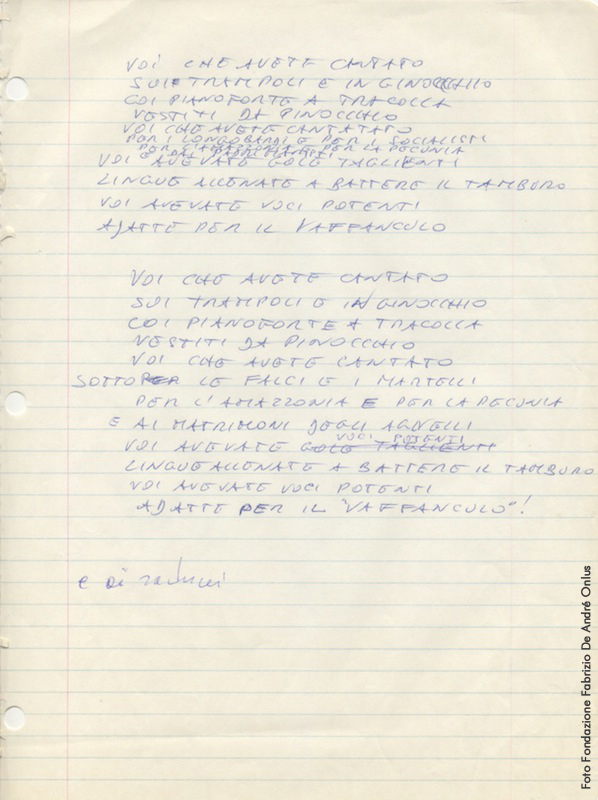 VOI CHE AVETE CANTATO
SUI TRAMPOLI E IN GINOCCHIO
COI PIANOFORTE A TRACOLLA
VESTITI DA PINOCCHIO
VOI CHE AVETE CANTATATO
PER I LONGOBARDI E PER I SOCIALISTI
PER L'AMAZZONIA E PER LA PECUNIA
E DAI
VOI AVEVATE GOLE TAGLIENTI
LINGUE ALLENATE A BATTERE IL TAMBURO
VOI AVEVATE VOCI POTENTI
ADATTE PER IL VAFFANCULO
VOI CHE AVETE CANTATO
SUI TRAMPOLI E IN GINOCCHIO
COI PIANOFORTE A TRACOLLA
VESTITI DA PINOCCHIO
VOI CHE AVETE CANTATO
SOTTO PER LE FALCI E I MARTELLI
PER L'AMAZZONIA E PER LA PECUNIA
E AI MATRIMONI DEGLI AGNELLI
VOCI POTENTI
VOI AVEVATE GOLE TAGLIENTI
LINGUE ALLENATE A BATTERE IL TAMBURO
VOI AVEVATE VOCI POTENTI
ADATTE PER IL "VAFFANCULO"!
e ai
Foto Fondazione Fabrizio De André Onlus